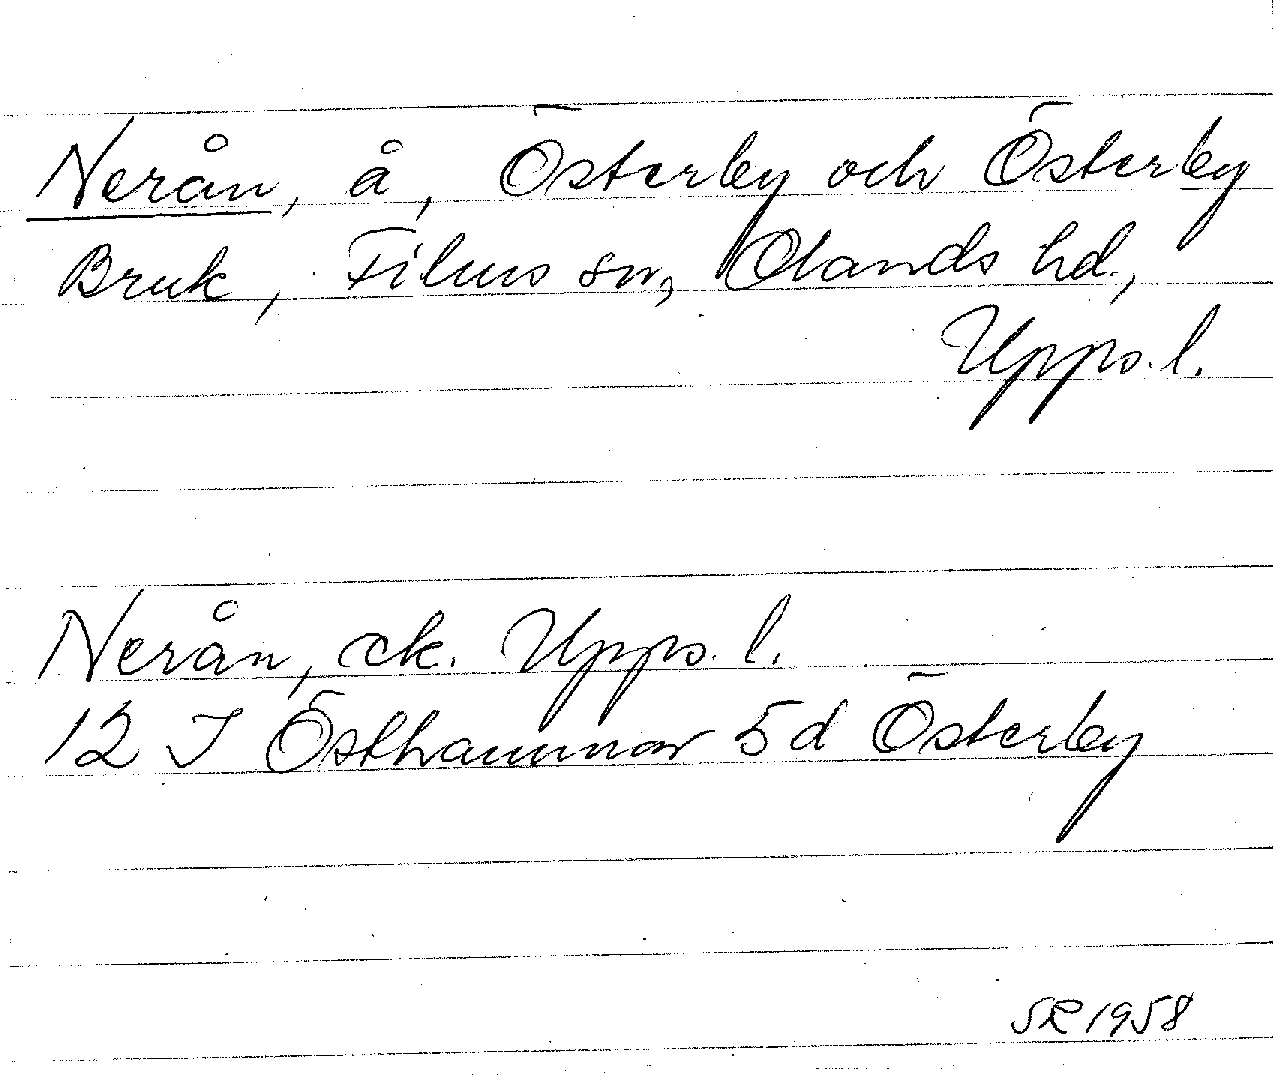 Nerån, å, Österby och Österby
Bruk, Films sn, Olands hd.,
Upps. l.
Nerån, ek. Upps. l.
12 I Östhammar 5d Österby
SR 1958